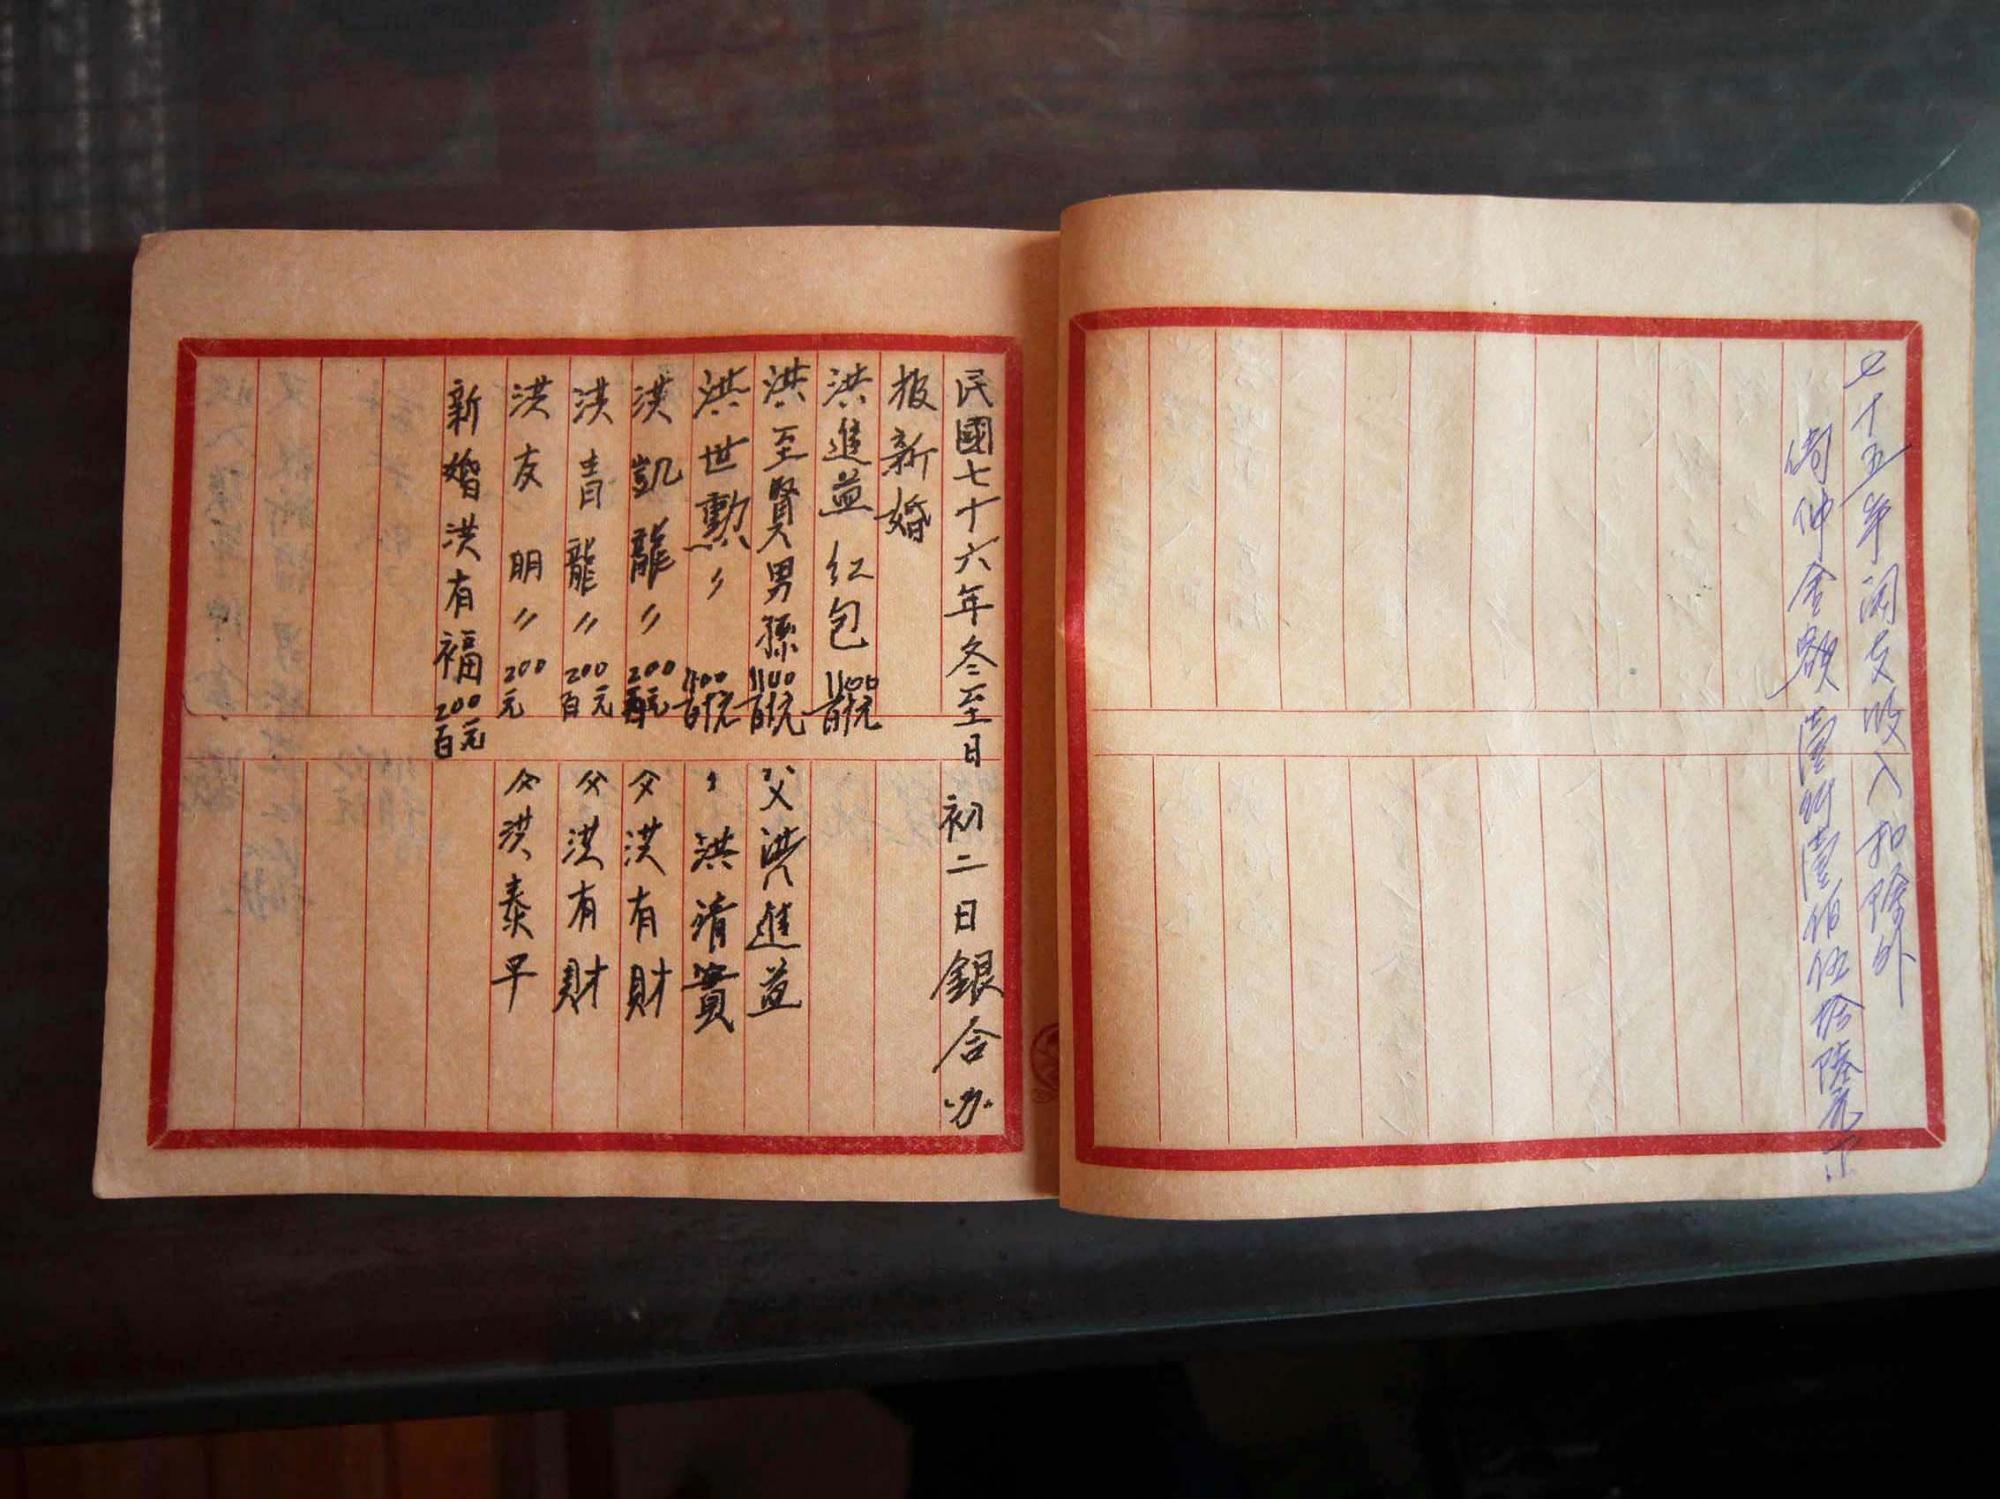 七十五年 開支收入扣除外
尚伸金額 壹仟壹佰伍拾陸元
民國七十六年冬至日 初二日 銀合办
报新婚
洪進益 红包 1100元
洪至賢男孫 1100元 父洪進益
洪世勲〃 〃洪清寶
洪凱龍〃 200元 父洪有財
洪青龍〃 200百元 父洪有財
洪友朋〃 200元 父洪泰早
新婚洪有福 200百元